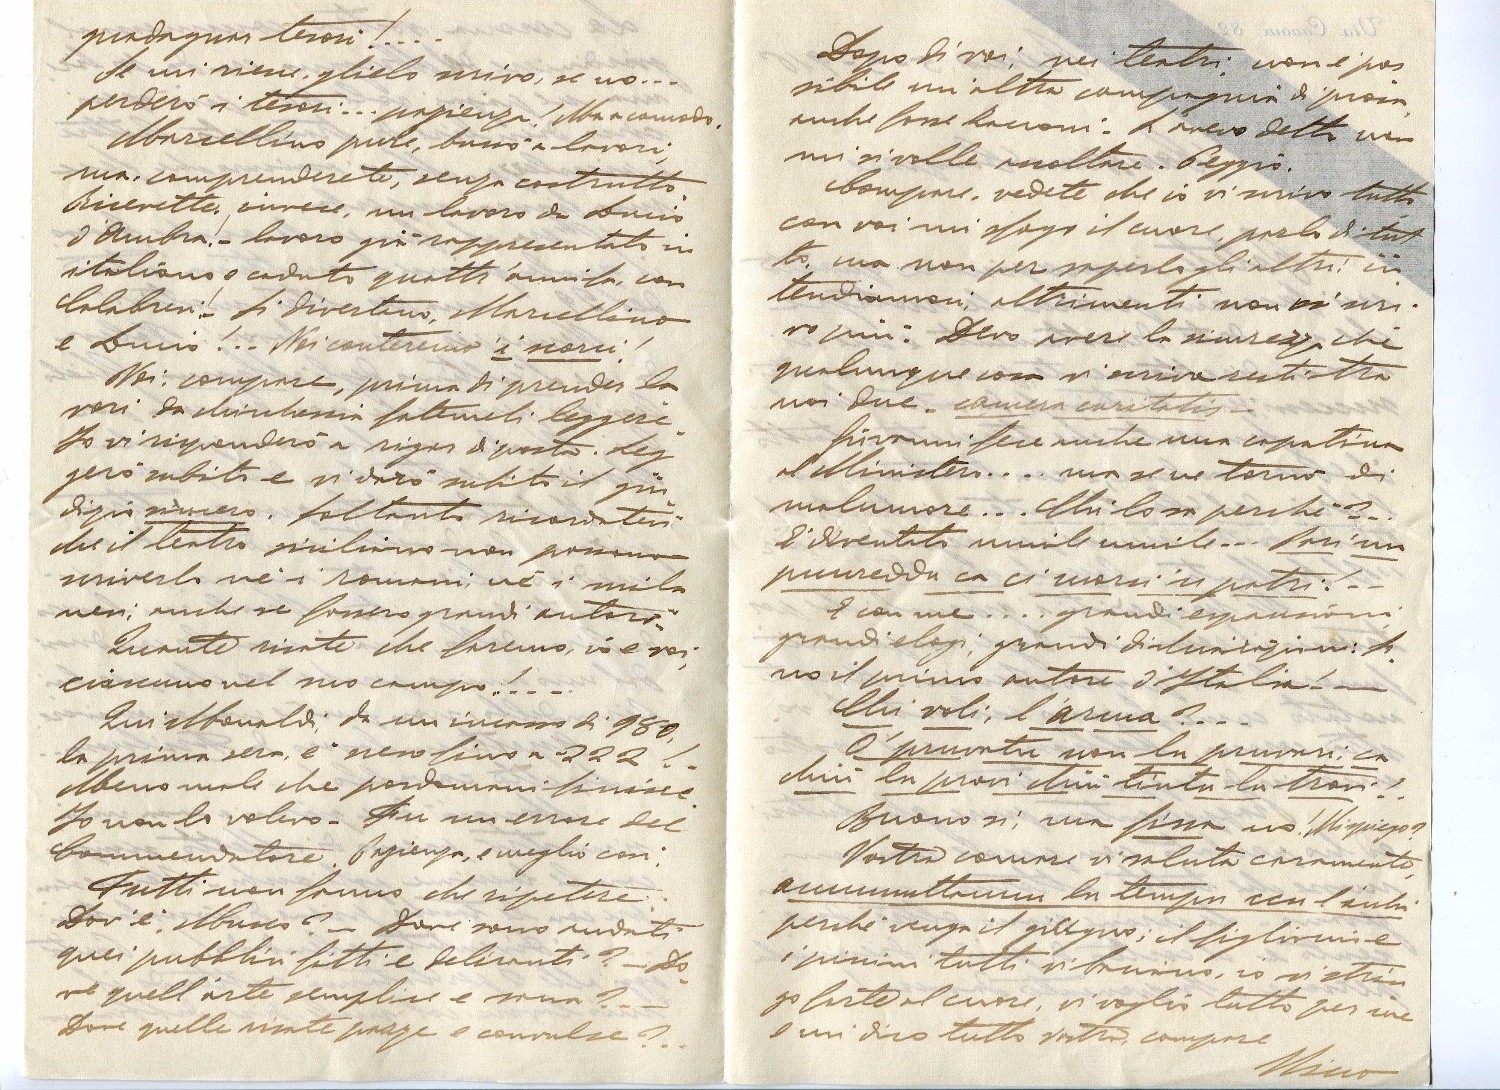 guadagnar tesori!....
Se mi riesce, glielo scrivo, se no...
perderò i tesori... pazienza! Ma a comodo.
Marcellino pure, bussò a lavori,
ma, comprenderete, senza costrutto.
Ricevette, invece, un lavoro da Lucio
d'Ambra! - lavoro già rappresentato in
italiano e caduto quattr'anni fa, con
Calabresi! - Si divertano, Marcellino
e Lucio!... Noi conteremo i morsi!
Voi, compare, prima di prender la
vori da chicchessia fatemeli leggere.
Io vi risponderò a rigor di posta. Leg
gerò subito e vi darò subito il giu
dizio sincero. Soltanto ricordatevi
che il teatro siciliano non possono
scriverlo nè i romani, nè i mila
nesi, anche se fossero grandi autori.
Quante risate che faremo, io e voi,
ciascuno nel suo campo!....
Qui Monaldi, da un incasso di 980,
la prima sera, è sceso fino a 222!-
Meno male che posdomani finisce.
Io non lo volevo - Fu un errore del
Commendatore. Pazienza, e meglio così.
Tutti non fanno che ripetere:
Dov'è Musco? - Dove sono andati
quei pubblici fitti e deliranti? - Do-
ve quell'arte semplice e sana? -
Dove quelle risate pazze e convulse?...
Dopo di voi, nei teatri, non è pos
sibile un'altra compagnia di prosa,
anche fosse Zacconi - L'avevo detto, non
mi si volle ascoltare. Peggio.
Compare, vedete che io vi scrivo tutto
con voi mi sfogo il cuore, parlo di tut
to, ma non per saperlo gli altri! in
tendiamoci, altrimenti non vi scri-
vo più. Devo avere la sicurezza che
qualunque cosa vi scriva resti tra
noi due. camera caritatis.
Giovanni fece anche una capatina
al Ministero.... ma se ne tornò di
malumore.... Chi lo sa perchè?...
È diventato umile umile... Pari un
puureddu ca ci morsi so patri!-
E con me.... grandi espansioni,
grandi elogi, grandi dichiarazioni: So
no il primo autore d'Italia! -
Chi voli, l'arma?....
O pruvatu non lu pruvari, ca
chiù lu provi chiù tintu lu trovi!
Buono sì, ma fissa no! Mi spiego?
Vostra comare vi saluta caramente,
ammuttannu lu tempu cu l'anchi
perchè venga il giugno; il figlioccio e
i piccini tutti vi baciano, io vi strin
go forte al cuore, vi voglio tutto per me
e mi dico tutto vostro compare
Nino